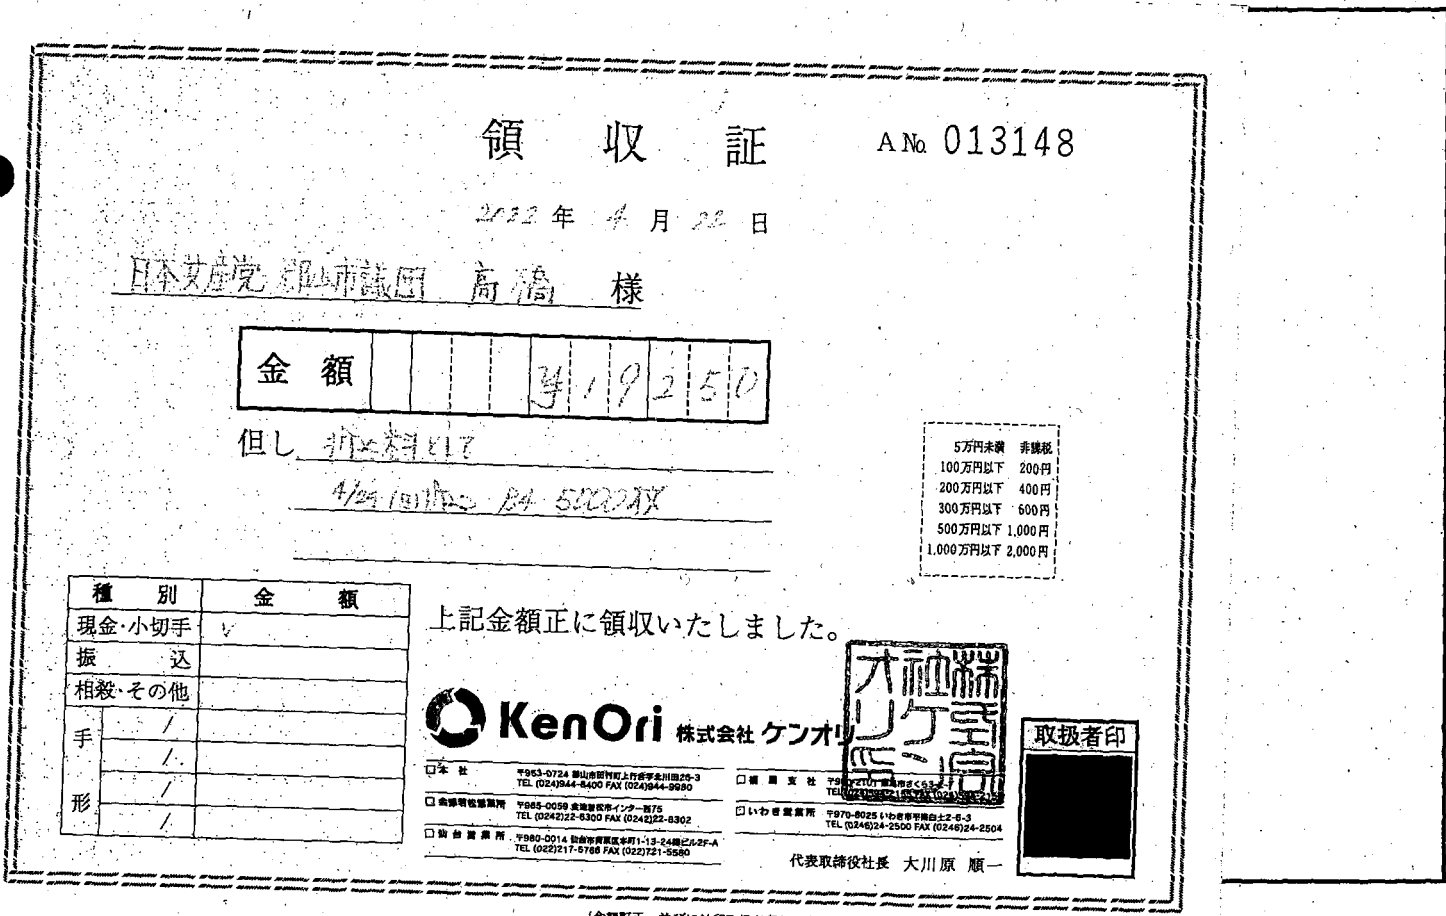 領収証
A No. 013148
2022年 4月 22日
日本共産党 郡山市議団 高橋 様
金額 ¥19250
但し 折込料として
4/24 B4 5000枚
5万円未満 非課税
100万円以下 200円
200万円以下 400円
300万円以下 600円
500万円以下 1,000円
1,000万円以下 2,000円
種別 金額
現金・小切手 レ
振込
相殺・その他
手形
上記金額正に領収いたしました。
KenOri 株式会社 ケンオリ
株式会社ケンオリ
取扱者印
本社 〒963-0724 郡山市田村町上行合字北川田26-3
TEL (024)944-8400 FAX (024)944-9980
会津若松営業所 〒965-0059 会津若松市インター西75
TEL (0242)22-6300 FAX (0242)22-6302
仙台営業所 〒980-0014 仙台市青葉区本町1-13-24 2F-A
TEL (022)217-5766 FAX (022)721-5580
福島支社
いわき営業所 〒970-8025 いわき市平南白土2-6-3
TEL (0246)24-2500 FAX (0246)24-2504
代表取締役社長 大川原 順一